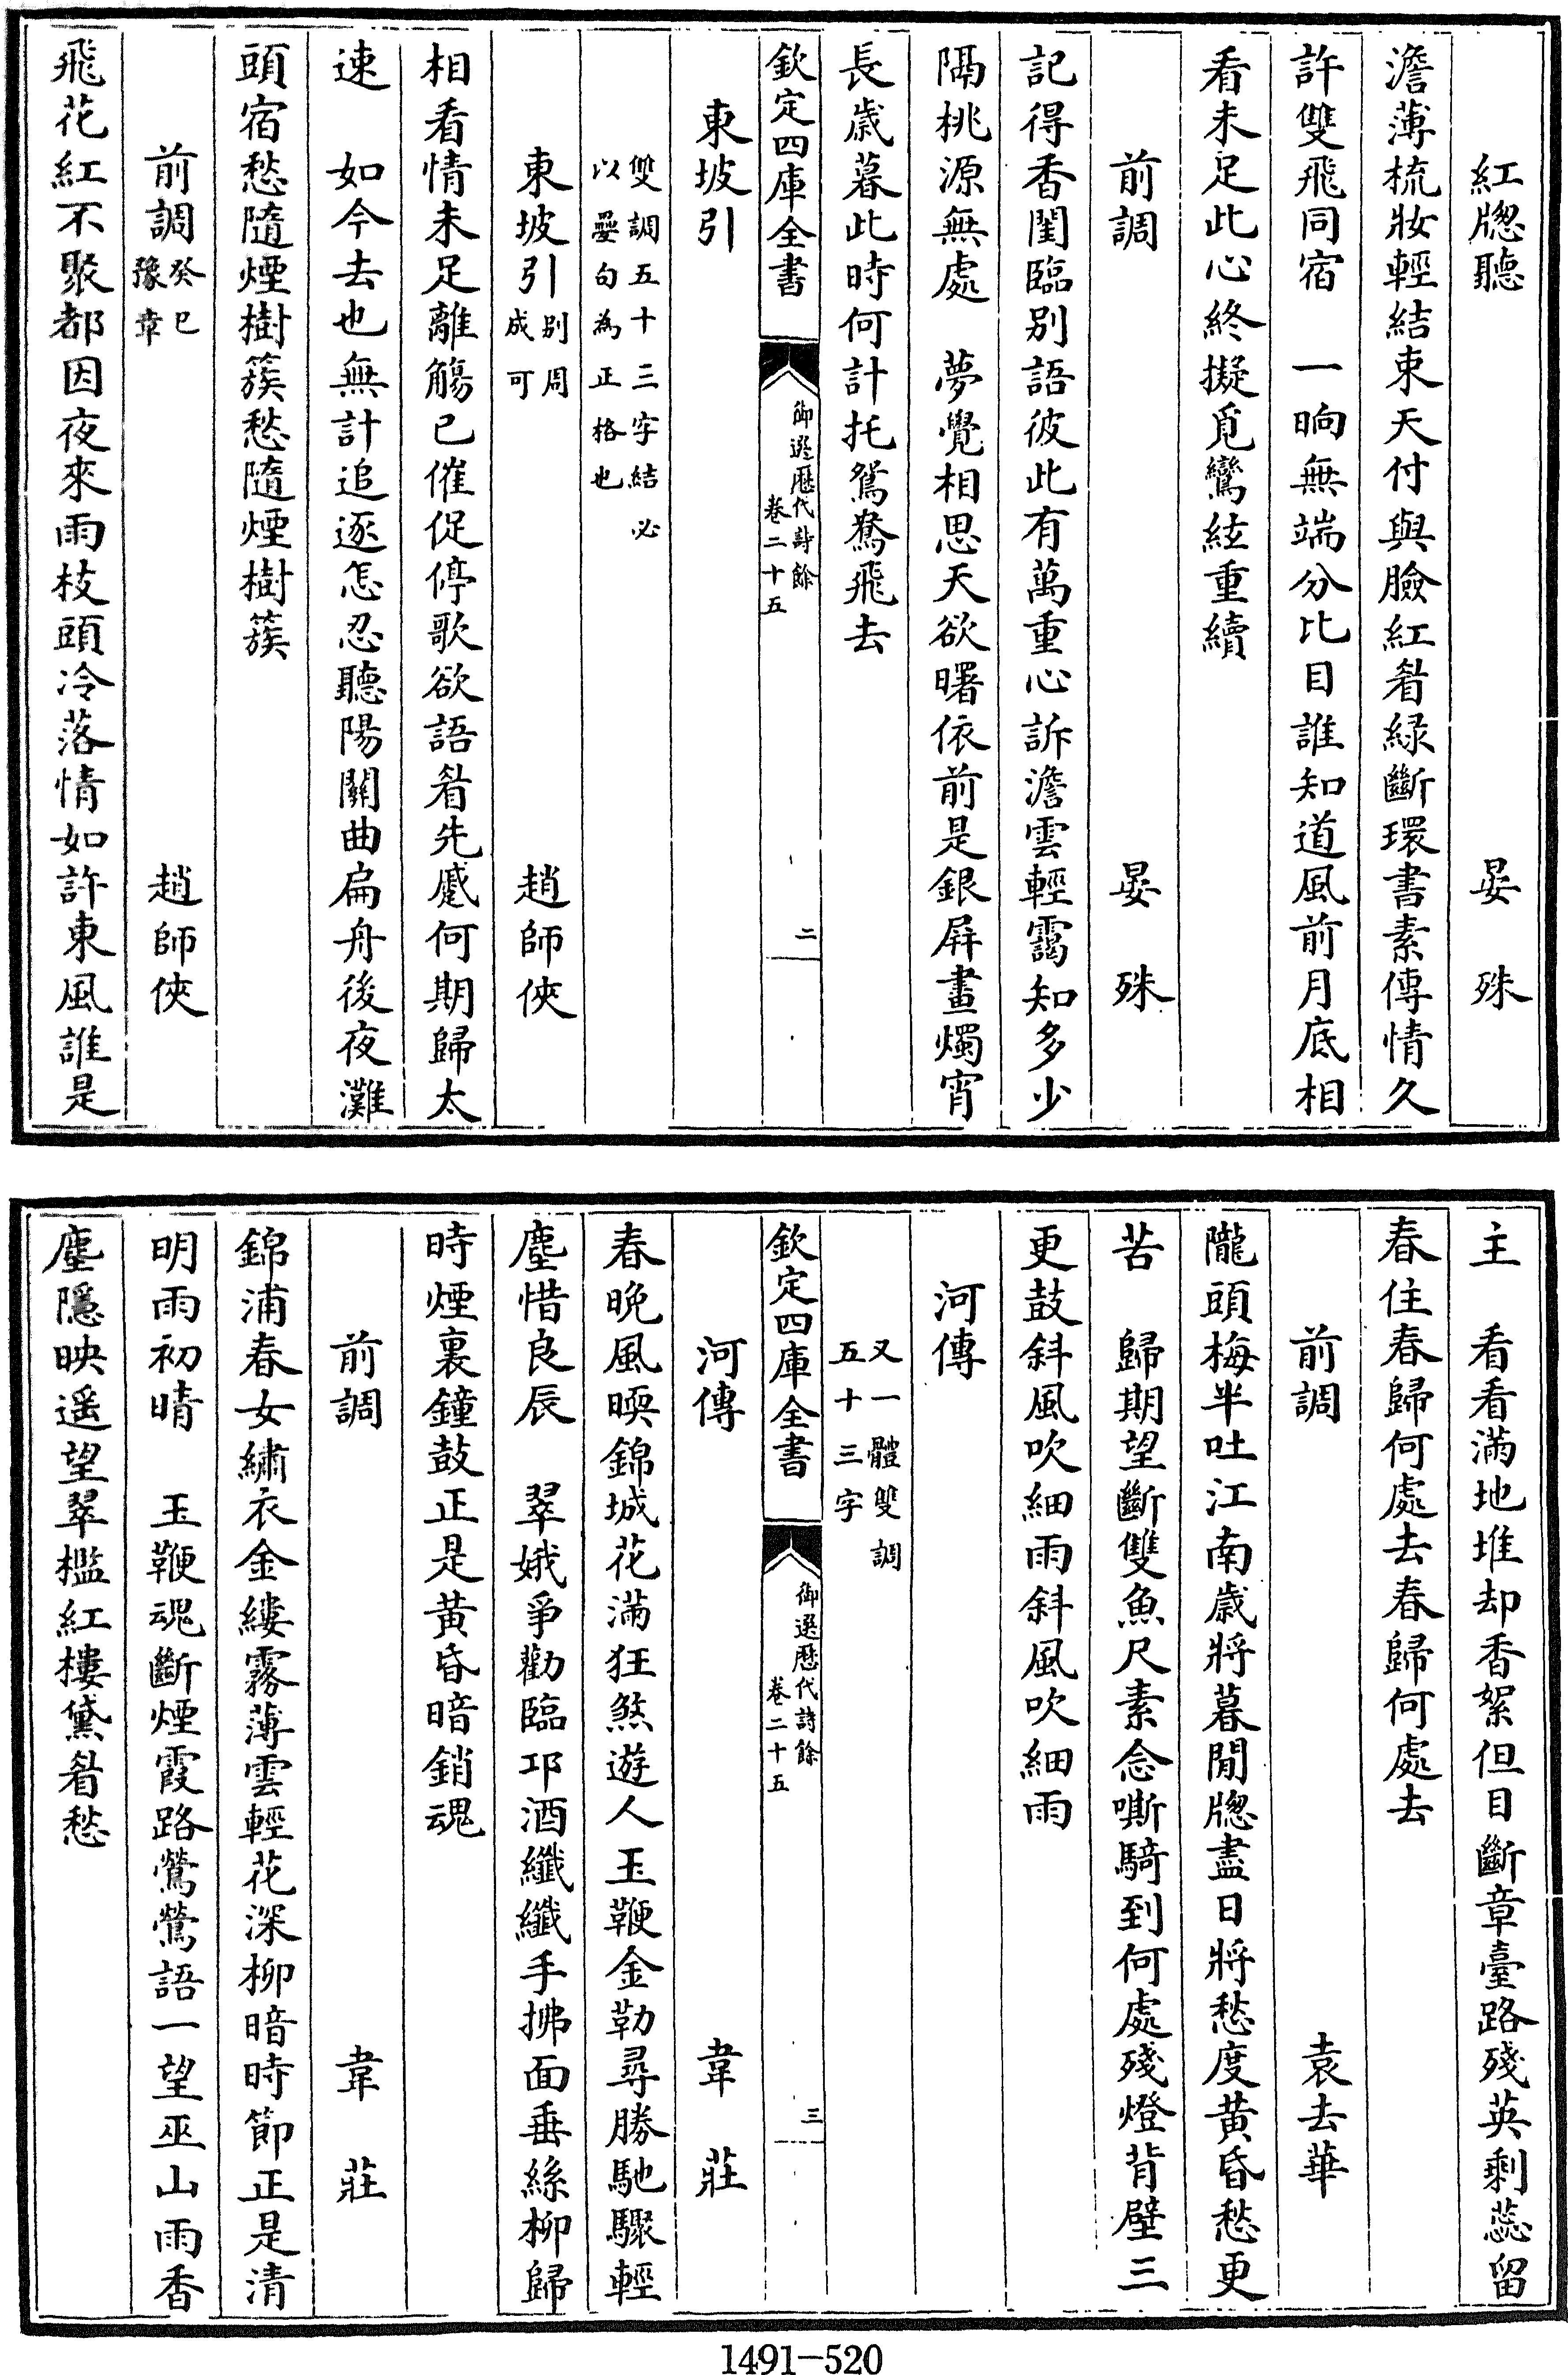 紅牕聽　晏殊
澹薄梳妝輕結束天付與臉紅眉緑斷環書素傳情久
許雙飛同宿　一晌無端分比目誰知道風前月底相
看未足此心終擬覓鸞絃重續
前調　晏殊
記得香閨臨别語彼此有萬重心訴澹雲輕靄知多少
隔桃源無處　夢覺相思天欲曙依前是銀屏畫燭宵
長歲暮此時何計托鴛鴦飛去
欽定四庫全書　御選歷代詩餘卷二十五　二
東坡引
雙調五十三字結必
以疊句為正格也
東坡引别周成可　趙師俠
相看情未足離觴已催促停歌欲語眉先蹙何期歸太
速　如今去也無計追逐怎忍聽陽關曲扁舟後夜灘
頭宿愁隨煙樹簇愁隨煙樹簇
前調癸巳豫章　趙師俠
飛花紅不聚都因夜來雨枝頭冷落情如許東風誰是
主　看看滿地堆却香絮但目斷章臺路殘英剩蕊留
春住春歸何處去春歸何處去
前調　袁去華
隴頭梅半吐江南歲將暮閒牕盡日將愁度黄昏愁更
苦　歸期望斷雙魚尺素念嘶騎到何處殘燈背壁三
更鼓斜風吹細雨斜風吹細雨
河傳
又一體雙調
五十三字
欽定四庫全書　御選歷代詩餘卷二十五　三
河傳　韋莊
春晚風暎錦城花滿狂煞遊人玉鞭金勒尋勝馳驟輕
塵惜良辰　翠娥爭勸臨邛酒纖纖手拂面垂絲柳歸
時煙裏鐘鼓正是黄昏暗銷魂
前調　韋莊
錦浦春女繡衣金縷霧薄雲輕花深柳暗時節正是清
明雨初晴　玉鞭魂斷煙霞路鶯鶯語一望巫山雨香
塵隱映遥望翠檻紅樓黛眉愁
1491-520